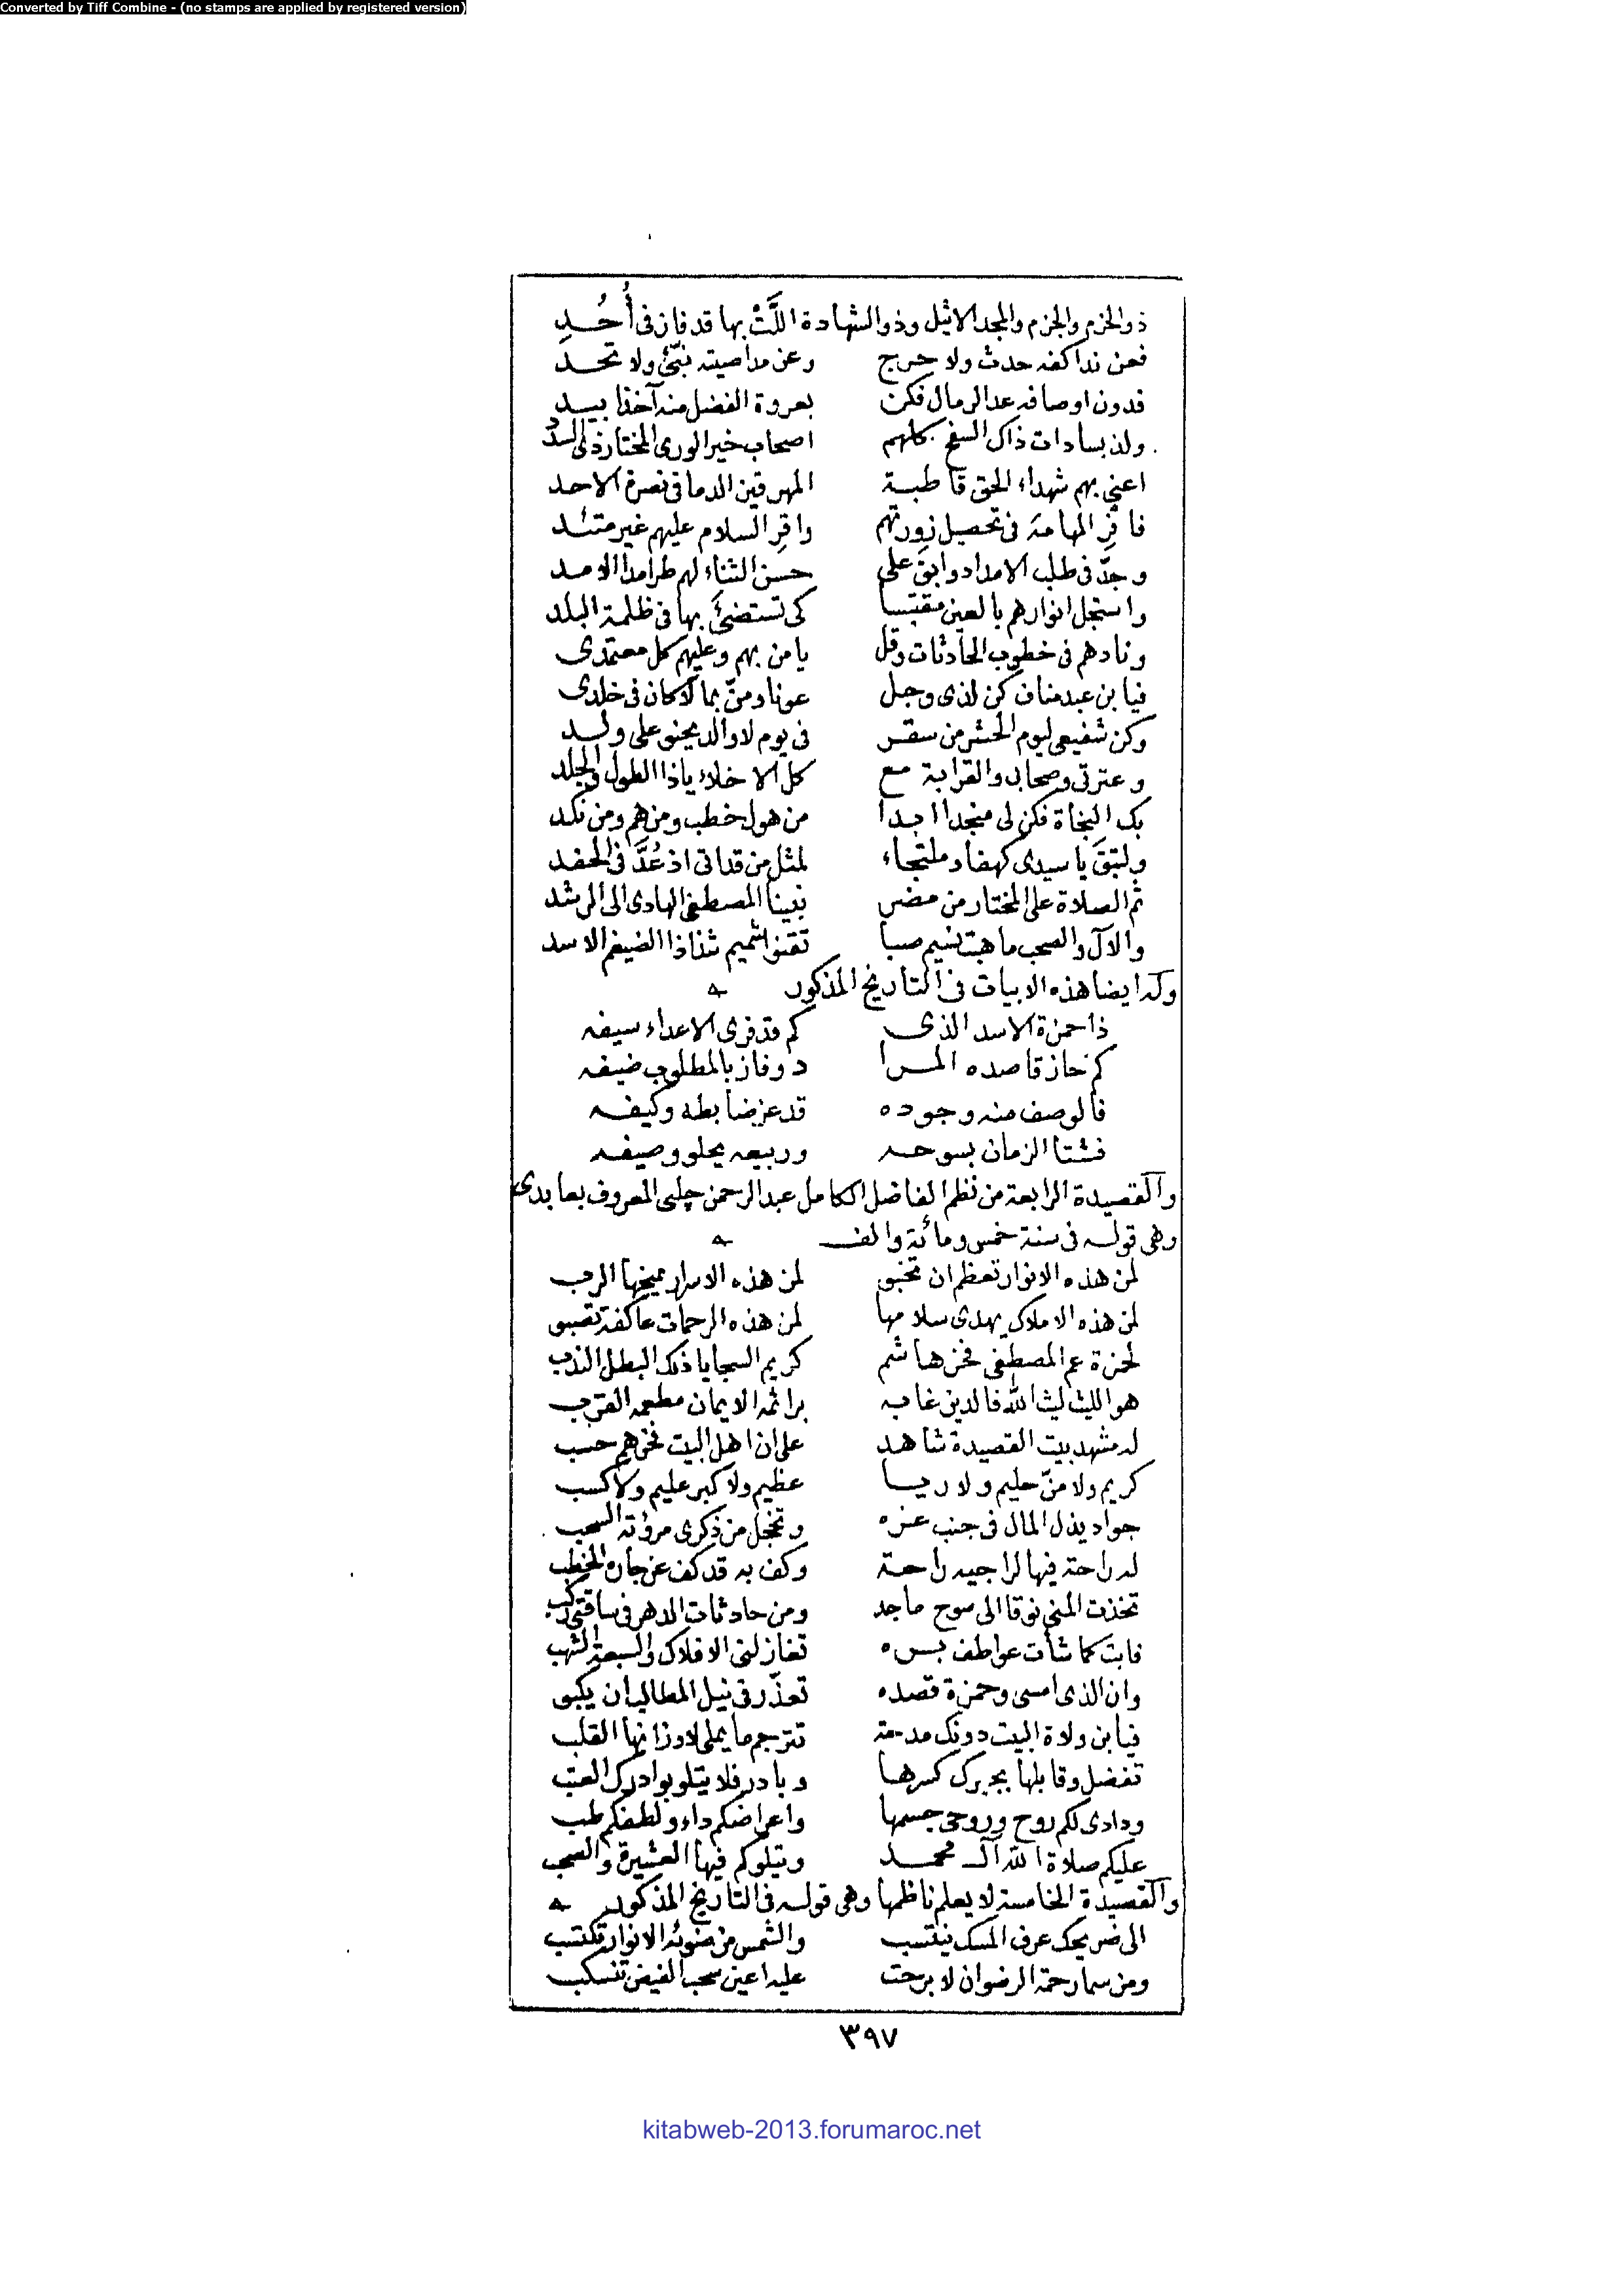 Converted by Tiff Combine - (no stamps are applied by registered version)
ذو الحزم والجزم والمجد الاثيل وذو الشهادة اللَّتْ بها قد فاز فى أُحُدِ
فعن ندا كفه حدث ولا حرج وعن مدا صيته نبّئ ولا تحد
فدون اوصافه عد الرمال فكن بعروة الفضل منه آخذا بيد
ولذ بسادات ذاك السفح كلهم اصحاب خير الورى المختار ذى السدد
اعنى بهم شهداء الحق قاطبة المهرقين الدما فى نصرة الاحد
فافر المهامه فى تحصيل زورتهم واقر السلام عليهم غير متئد
وجدّ فى طلب الامداد وابق على حسن الثناء لهم طرا مدا الامد
واستجل انوارهم بالعين مقتبسا كى تستضئ بها فى ظلمة البلد
ونادهم فى خطوب الحادثات وقل يا من بهم وعليهم كل معتمدى
فيا بن عبد مناف كن لذى وجل عونا ومنّ بما لا كان فى خلدى
وكن شفيعى ليوم الحشر من سقر فى يوم لا والد يحنو على ولد
وعترتى وصحابى والقرابة مع كل الاخلاء يا ذا الطول والجلد
بك النجاة فكن لى منجدا ابدا من هول خطب ومن هم ومن نكد
ولتبق يا سيدى كهفا وملتجاء لمثل من قد اتى اذ عُدَّ فى الحفد
ثم الصلاة على المختار من مضر نبينا المصطفى الهادى الى الرشد
والآل والصحب ما هبت نسيم صبا تقفو اشميم شذا ذا الضيغم الاسد
وله ايضا هذه الابيات فى التاريخ المذكور
ذا حمزة الاسد الذى كم قد فرى الاعداء سيفه
كم حاز قاصده المرا د وفاز بالمطلوب ضيفه
فالوصف منه وجوده قد عز ضابطه وكيفه
فشتا الزمان بسوحه وربيعه يحلو وصيفه
والقصيدة الرابعة من نظم الفاضل الكامل عبد الرحمن چلبى المعروف بعابدى
وهى قوله فى سنة خمس ومائة والف
لمن هذه الانوار تعظم ان تخبو لمن هذه الاسرار يمنحها الرب
لمن هذه الاملاك يهدى سلامها لمن هذه الرحمات عاكفة تصبو
لحمزة عم المصطفى فخر هاشم كريم السجايا ذلك البطل الندب
هو الليث ليث الله فالدين غابه براثنه الايمان مطعمه القرب
له مشهد بيت القصيدة شاهد على ان اهل البيت فخرهم حسب
كريم ولا منّ حليم ولا ريا عظيم ولا كبر عليم ولا كسب
جواد يذل المال فى جنب عزه وتخجل من ذكرى مروئته السحب
له راحة فيها لراجيه راحة وكف به قد كف عن جاره الخطب
تخذت المنى نوقا الى سوح ماجد ومن حادثات الدهر فى ساقتى ركب
فابت كما شأت عواطف بره تغازلنى الافلاك والسبعة الشهب
وان الذى امسى وحمزة قصده تعذّر فى نيل المطالب ان يكبو
فيا بن ولاة البيت دونك مدحة تترجم ما يملى لاوزانها القلب
تفضل وقابلها بجبرك كسرها وبادر فلا يتلو بوادرك العتب
ودادى لكم روح وروحى جسمها واعراضكم داء ولطفكم طب
عليكم صلاة الله آل محمد ويتلوكم فيها العشيرة والصحب
والقصيدة الخامسة لا يعلم ناظمها وهى قوله فى التاريخ المذكور
الى ضريحك عرف المسك ينتسب والشمس من ضوئه الانوار تكتسب
ومن سما رحمة الرضوان لا برحت عليه اعين سحب الفيض تنسكب
٣٩٧
kitabweb-2013.forumaroc.net